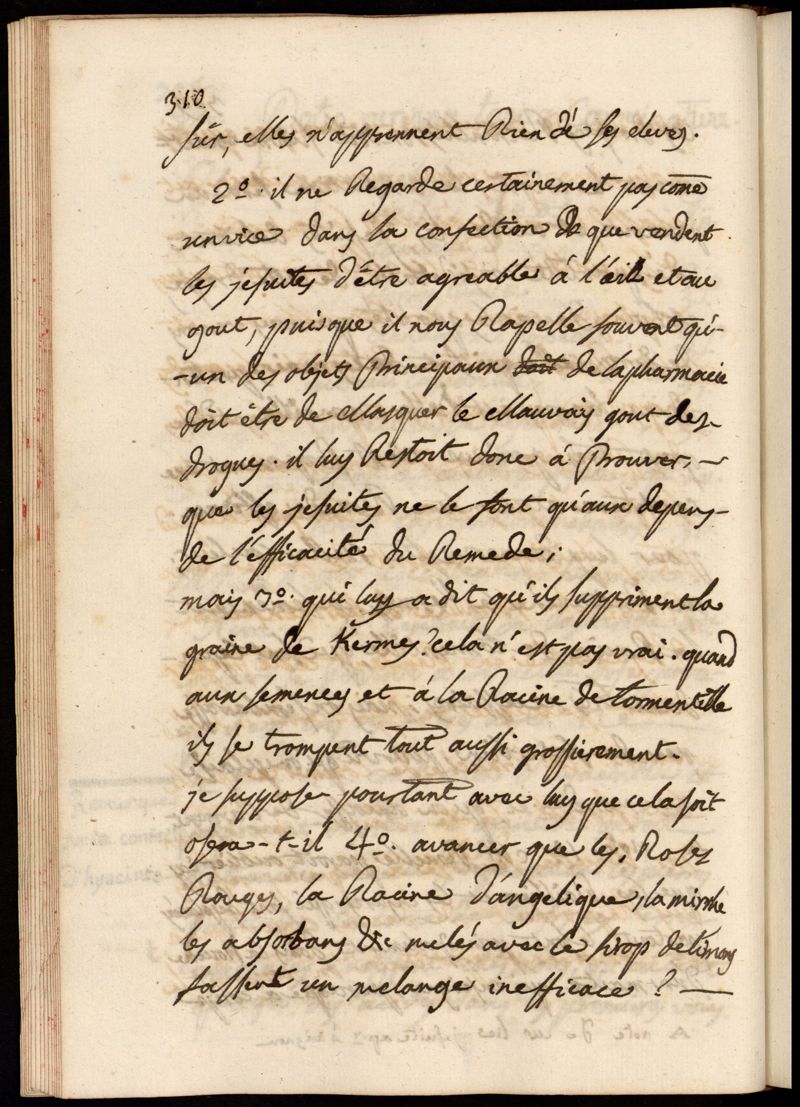 310
sur, elles n'apprennent Rien dé ses eleves.
2º. il ne Regarde certainement pas come
un vice dans la confection de que vendent
les jesuites d'être agreable à l'œil et au
gout, puisque il nous Rapelle souvent qu'-
-un des objets Principaux doit de la pharmacie
doit être de Masquer le Mauvais gout des-
drogues. il luy Restoit donc à Prouver, -
que les jesuites ne le font qu'aux depens-
de l'efficacité du Remede;
mais 3º. qui luy a dit qu'ils suppriment la
graine de Kermes? cela n'est pas vrai. quand
aux semences et à la Racine de tormentille
ils se trompent tout aussi grossierement.
je suppose pourtant avec luy que cela soit
osera-t-il 4º. avancer que les, Roses
Rouges, la Racine d'angelique, la mirrhe
les absorbans &c melés avec le sirop de limons
fassent un melange inefficace? -